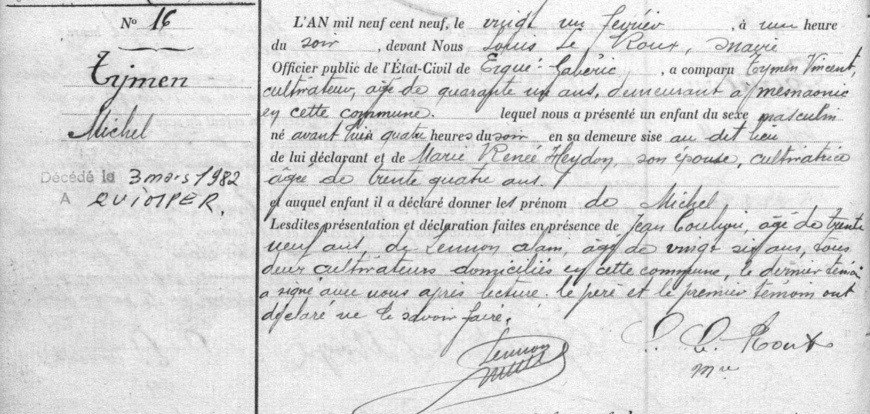 N° 16
Tymen
Michel
Décédé le 3 mars 1982
A QUIMPER.
L'AN mil neuf cent neuf, le vingt un fevrier, à un heure
du soir, devant Nous Louis Le Roux, Maire
Officier public de l'État-Civil de Ergué-Gabéric, a comparu Tymen Vincent,
cultivateur, âgé de quarante un ans, demeurant à mesnaonic
en cette commune. lequel nous a présenté un enfant du sexe masculin
né avant hier quatre heures du soir en sa demeure sise au dit lieu
de lui déclarant et de Marie Renée Heydon, son épouse, cultivatrice
âgée de trente quatre ans.
et auquel enfant il a déclaré donner les prénom de Michel
Lesdites présentation et déclaration faites en présence de Jean, âgé de trente
neuf ans, de Lennon alain, âgé de vingt six ans, tous
deux cultivateurs domiciliés en cette commune, le dernier témoin
a signé avec nous après lecture. le père et le premier témoin ont
déclaré ne le savoir faire.
Lennon
L. Le Roux